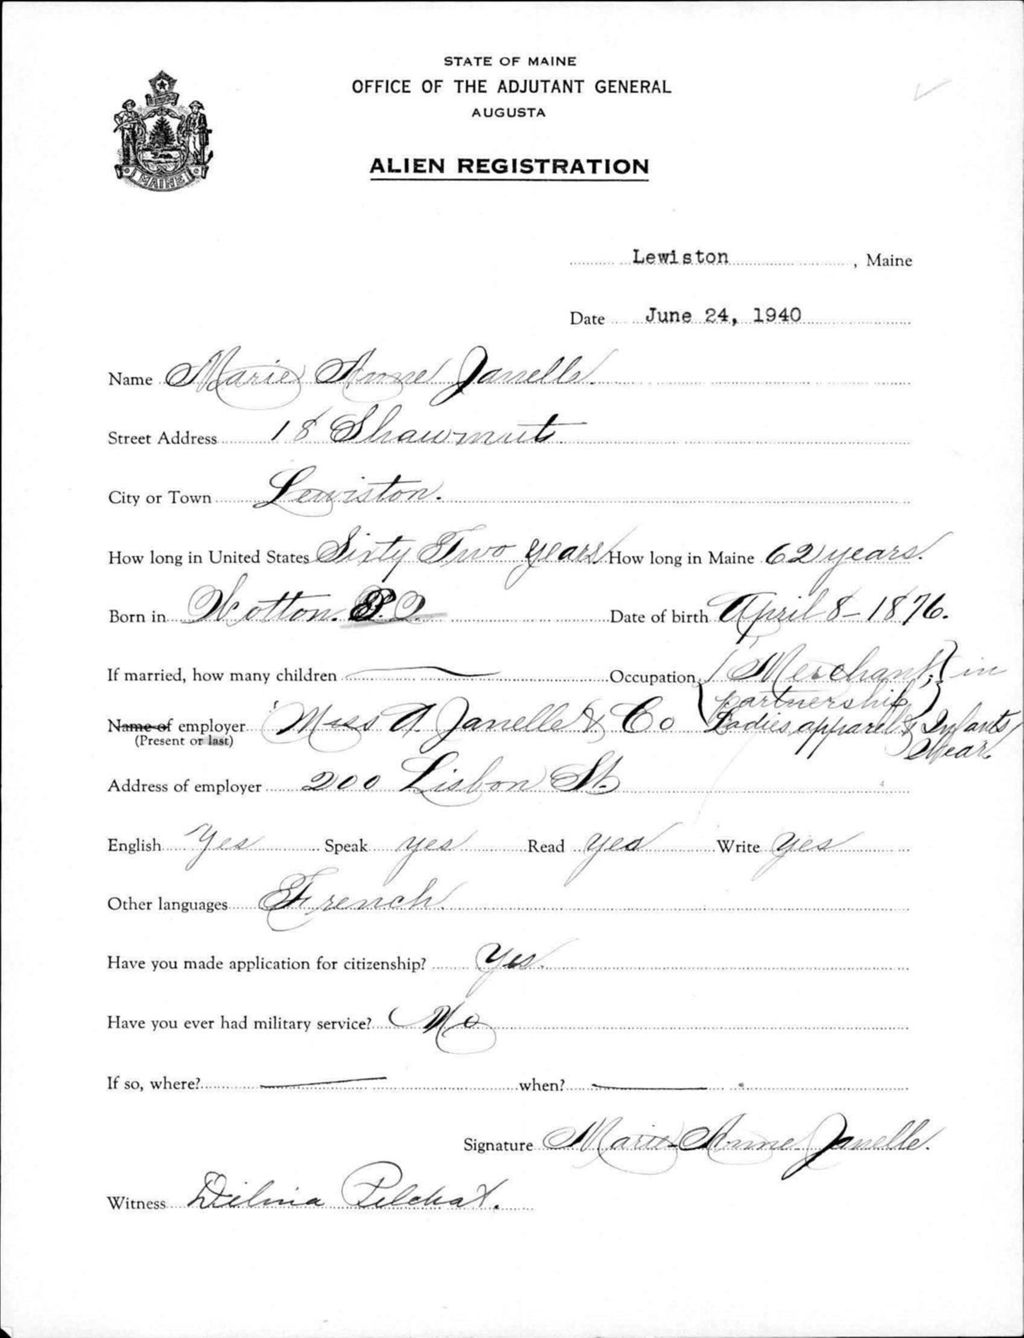 STATE OF MAINE
OFFICE OF THE ADJUTANT GENERAL
AUGUSTA
ALIEN REGISTRATION
MAINE
Lewiston, Maine
Date June 24, 1940
Name Marie Anne Janelle.
Street Address 18 Shawmut
City or Town Lewiston.
How long in United States Sixty Two years How long in Maine 62 years.
Born in Wotton. P.Q. Date of birth April 8-1876.
If married, how many children Occupation Merchant, in
partnership
Name of employer Miss A. Janelle & Co Ladies apparel & Infants
(Present or last) Wear.
Address of employer 200 Lisbon St.
English Yes Speak yes Read yes Write yes
Other languages French.
Have you made application for citizenship? Yes.
Have you ever had military service? No
If so, where? when?
Signature Marie-Anne Janelle.
Witness Dilina Pelchat.